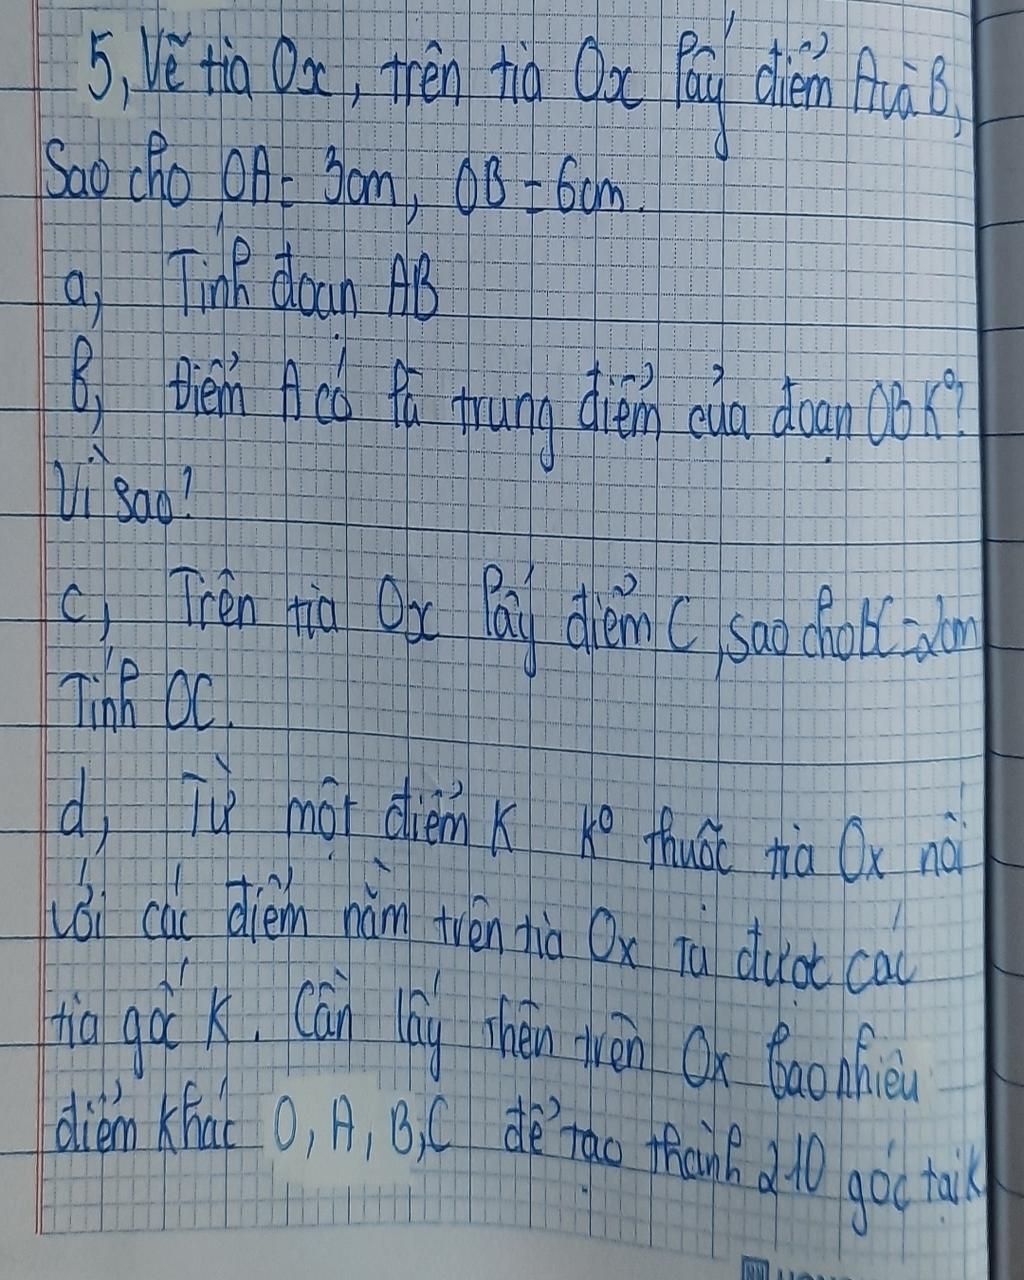 5, Vẽ tia Ox, trên tia Ox lấy điểm A và B,
Sao cho OA = 3cm, OB = 6cm.
a, Tính đoan AB
b, Điểm A có là trung điểm của đoạn OB K°?
Vì sao?
c, Trên tia Ox lấy điểm C, sao cho BC = 2cm
Tính OC.
d, Từ một điểm K K° thuộc tia Ox nối
với các điểm nằm trên tia Ox Ta được các
tia gốc K. Cần lấy thên trên Ox bao nhiêu
điểm khác O, A, B, C để tạo thành 210 góc tại K